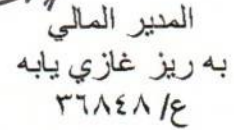 المدير المالي
به ريز غازي يابه
ع/ ٣٦٨٤٨